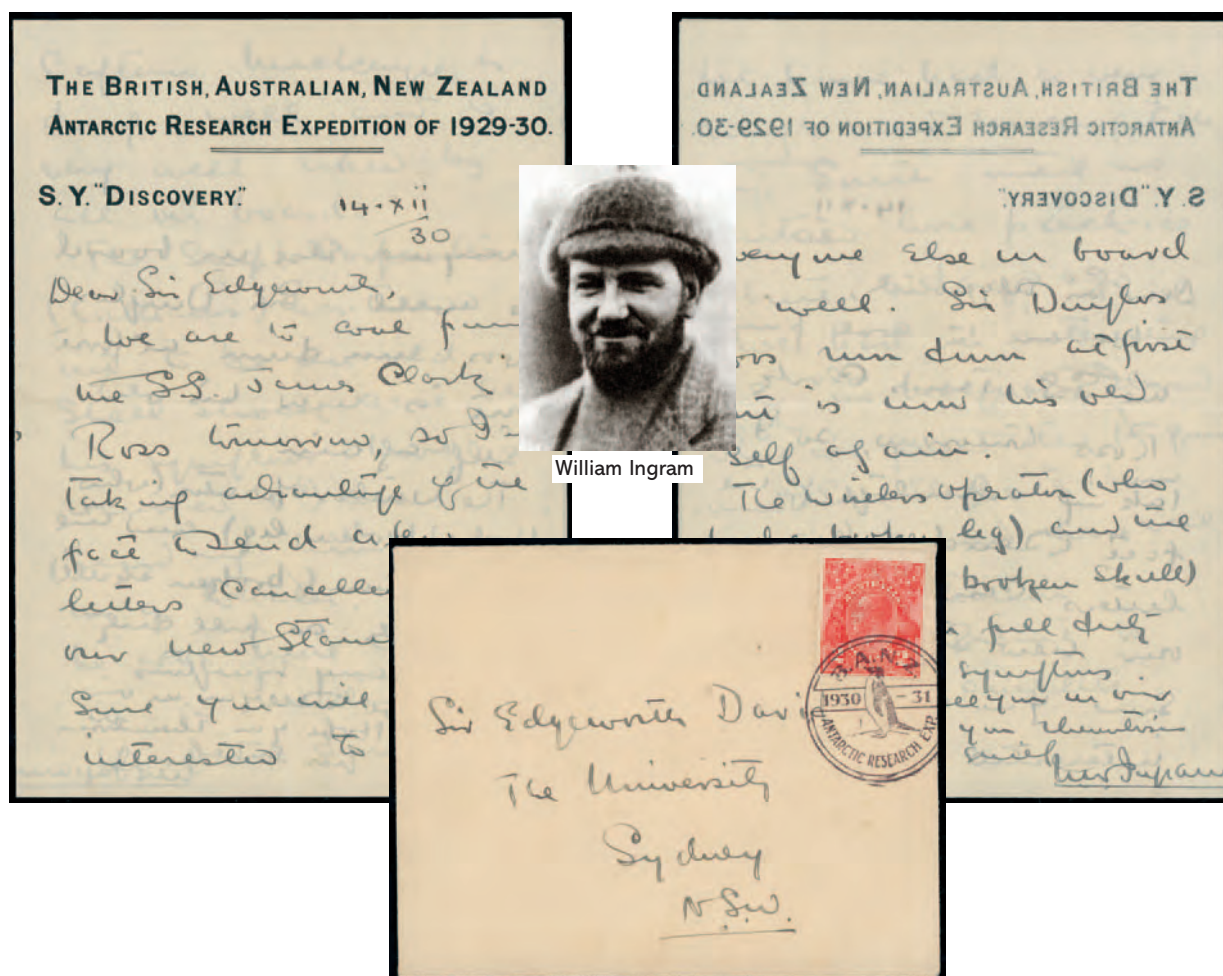 THE BRITISH, AUSTRALIAN, NEW ZEALAND
ANTARCTIC RESEARCH EXPEDITION OF 1929-30.
S.Y. "DISCOVERY."
14.XII
30
Dear Sir Edgeworth,
We are to coal from
the S.S. James Clark
Ross tomorrow, so I
taking advantage of the
fact to send
letters
our new
Sure you will
interested to
THE BRITISH, AUSTRALIAN, NEW ZEALAND
ANTARCTIC RESEARCH EXPEDITION OF 1929-30.
S.Y. "DISCOVERY."
else on board
well. Sir Douglas
run down at first
is now his old
self again.
The wireless operator (who
leg) and the
broken skull)
full duty
symptoms.
you in our
William Ingram
1930 - 31
ANTARCTIC RESEARCH EXP.
Sir Edgeworth Davi
The University
Sydney
N.S.W.